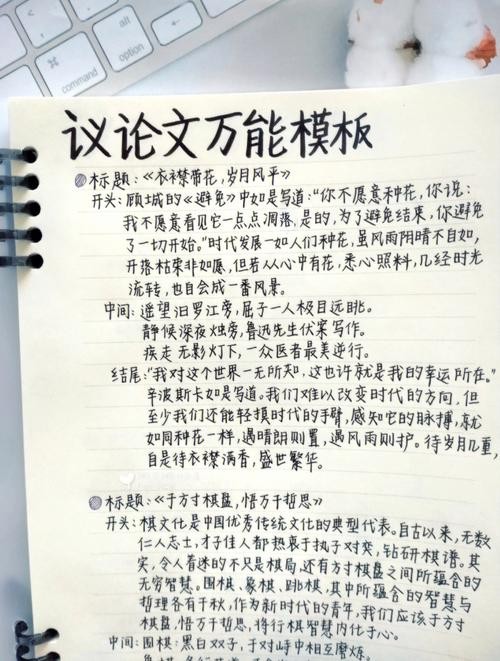 alt
command
option
议论文万能模板
标题:《衣襟带花,岁月风平》
开头:顾城的《避免》中如是写道:“你不愿意种花,你说:
我不愿意看见它一点点凋落,是的,为了避免结束,你避免
了一切开始。”时代发展一如人们种花,虽风雨阴晴不自如,
开落枯荣非如愿,但若从心中有花,悉心照料,几经时光
流转,也自会成一番风景。
中间:遥望汨罗江旁,屈子一人极目远眺。
静候深夜烛旁,鲁迅先生伏案写作。
疾走无影灯下,一众医者最美逆行。
结尾:“我对这个世界一无所知,这也许就是我的幸运所在。”
辛波斯卡如是写道。我们难以改变时代的方向,但
至少我们还能轻摸时代的手臂,感知它的脉搏,就
如同种花一样,遇晴朗则置,遇风雨则护。待岁月几重,
自是待衣襟满香,盛世繁华。
标题:《于方寸棋盘,悟万千哲思》
开头:棋文化是中国优秀传统文化的典型代表。自古以来,无数
仁人志士,才子佳人都热衷于执子对弈,钻研棋谱。其
实,令人着迷的不只是棋局,还有方寸棋盘之间所蕴含的
无穷智慧。围棋、象棋、跳棋,其中所蕴含的智慧与
哲理各有千秋,作为新时代的青年,我们应该于方寸
棋盘,悟万千哲思,将行棋智慧内化于心。
中间:围棋:黑白双子,于对峙中相互磨炼。